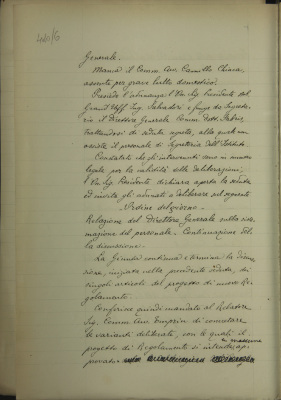 Generale.
Manca il Comm. Avv. Camillo Chiesa,
assente per grave lutto domestico.
Presiede l'adunanza l'On. Sig. Presidente
Grand'Uff. Ing. Salvadori e funge da Segreta-
rio il Direttore Generale Comm. Dott.
trattandosi di seduta segreta, alla quale non
assiste il personale di Segreteria dell'Istituto.
Constatato che gl'intervenuti sono in numero
legale per la validità delle deliberazioni,
l'On. Sig. Presidente dichiara aperta la seduta
ed invita gli adunati a deliberare sul seguente
Ordine del giorno
Relazione del Direttore Generale sulla siste-
mazione del personale. Continuazione del-
la discussione.
La Giunta continua e termina la discus-
sione, iniziata nella precedente seduta, dei
singoli articoli del progetto di nuovo Re-
golamento.
Conferisce quindi mandato al Relatore
Sig. Comm. Avv. di
le varianti deliberate, con le quali il
in massima
progetto di Regolamento si intende ap-
provato